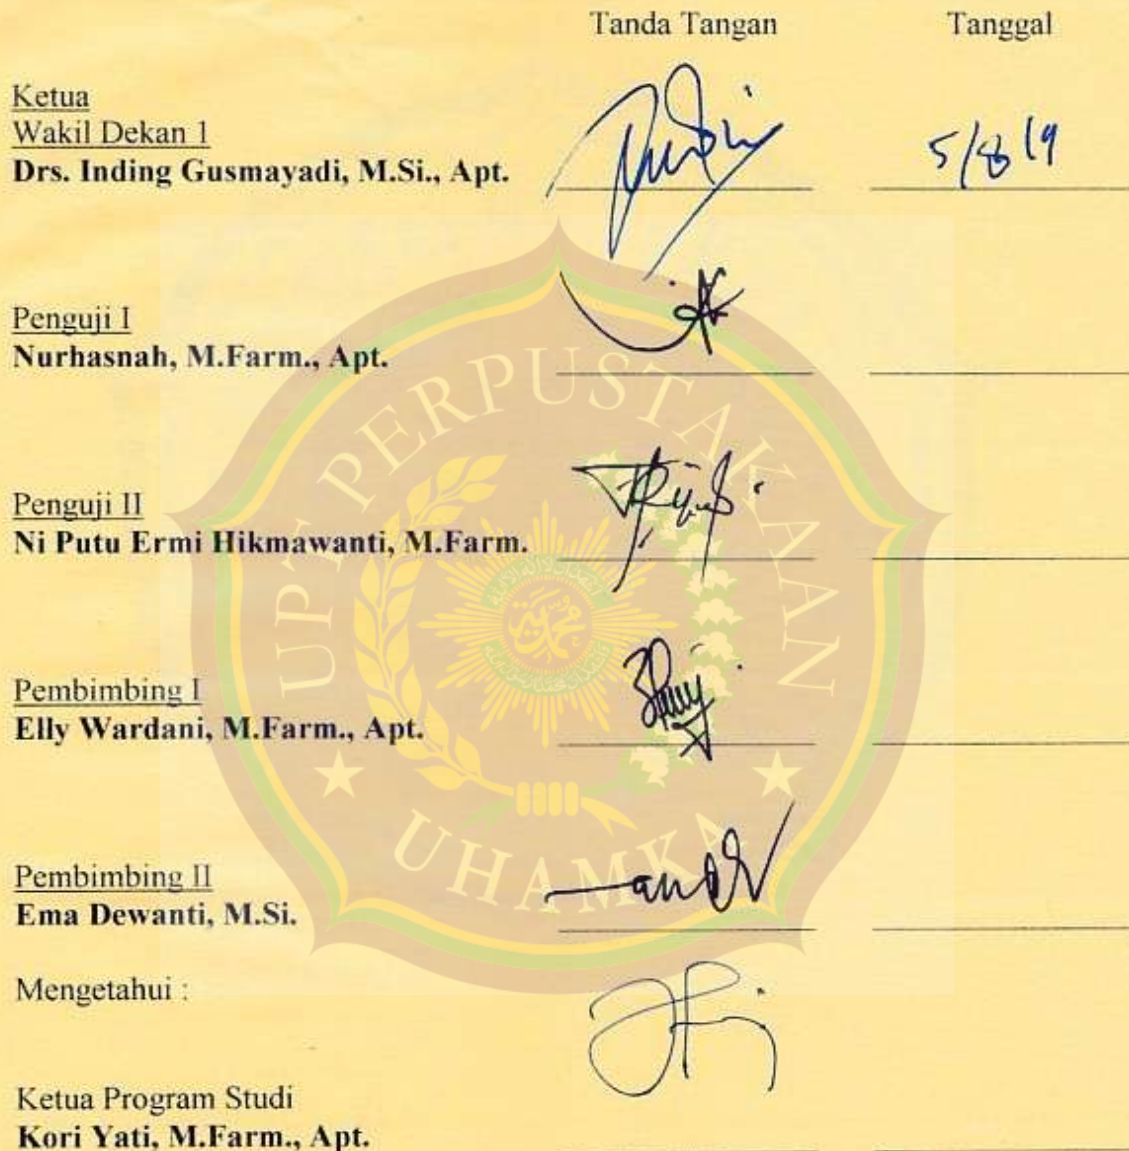 Tanda Tangan Tanggal
Ketua
Wakil Dekan 1
Drs. Inding Gusmayadi, M.Si., Apt.
5/8 19
Penguji I
Nurhasnah, M.Farm., Apt.
Penguji II
Ni Putu Ermi Hikmawanti, M.Farm.
Pembimbing I
Elly Wardani, M.Farm., Apt.
Pembimbing II
Ema Dewanti, M.Si.
Mengetahui :
Ketua Program Studi
Kori Yati, M.Farm., Apt.
UPT PERPUSTAKAAN
UHAMKA